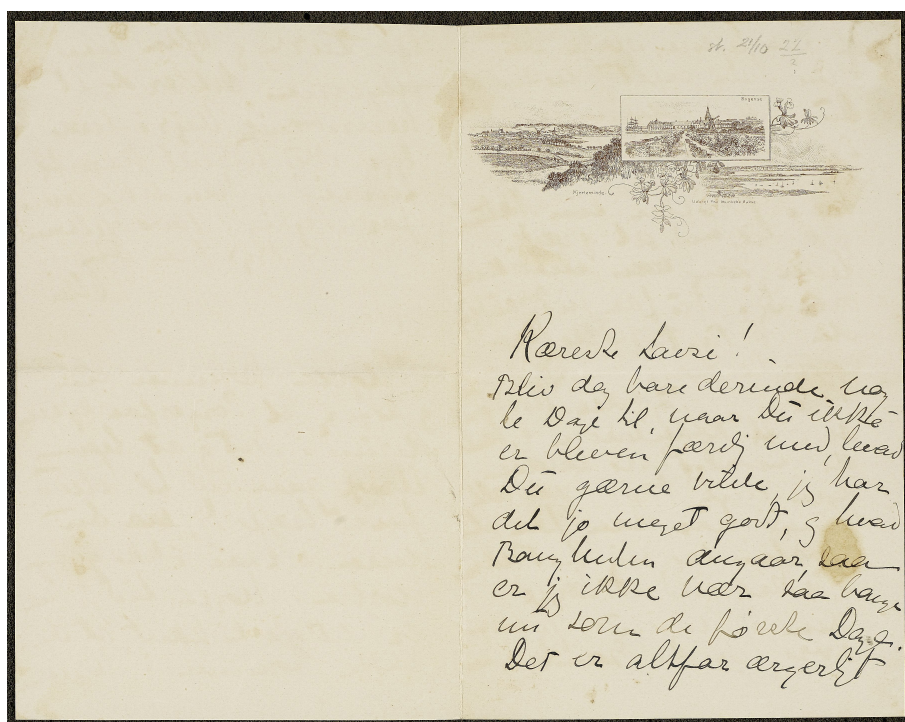 st. 21/10 22
2
1
Bogense
Kjerteminde
Udsigt fra Munkebo Bakke
Kæreste Lavsi!
Bliv dog bare derinde nog
le Dage til, naar Du ikke
er bleven færdig med, hvad
Du gærne vilde, jeg har
det jo meget godt, og hvad
Bangheden angaar, saa
er jeg ikke nær saa bange
nu som de første Dage.
Det er altfor ærgerligt